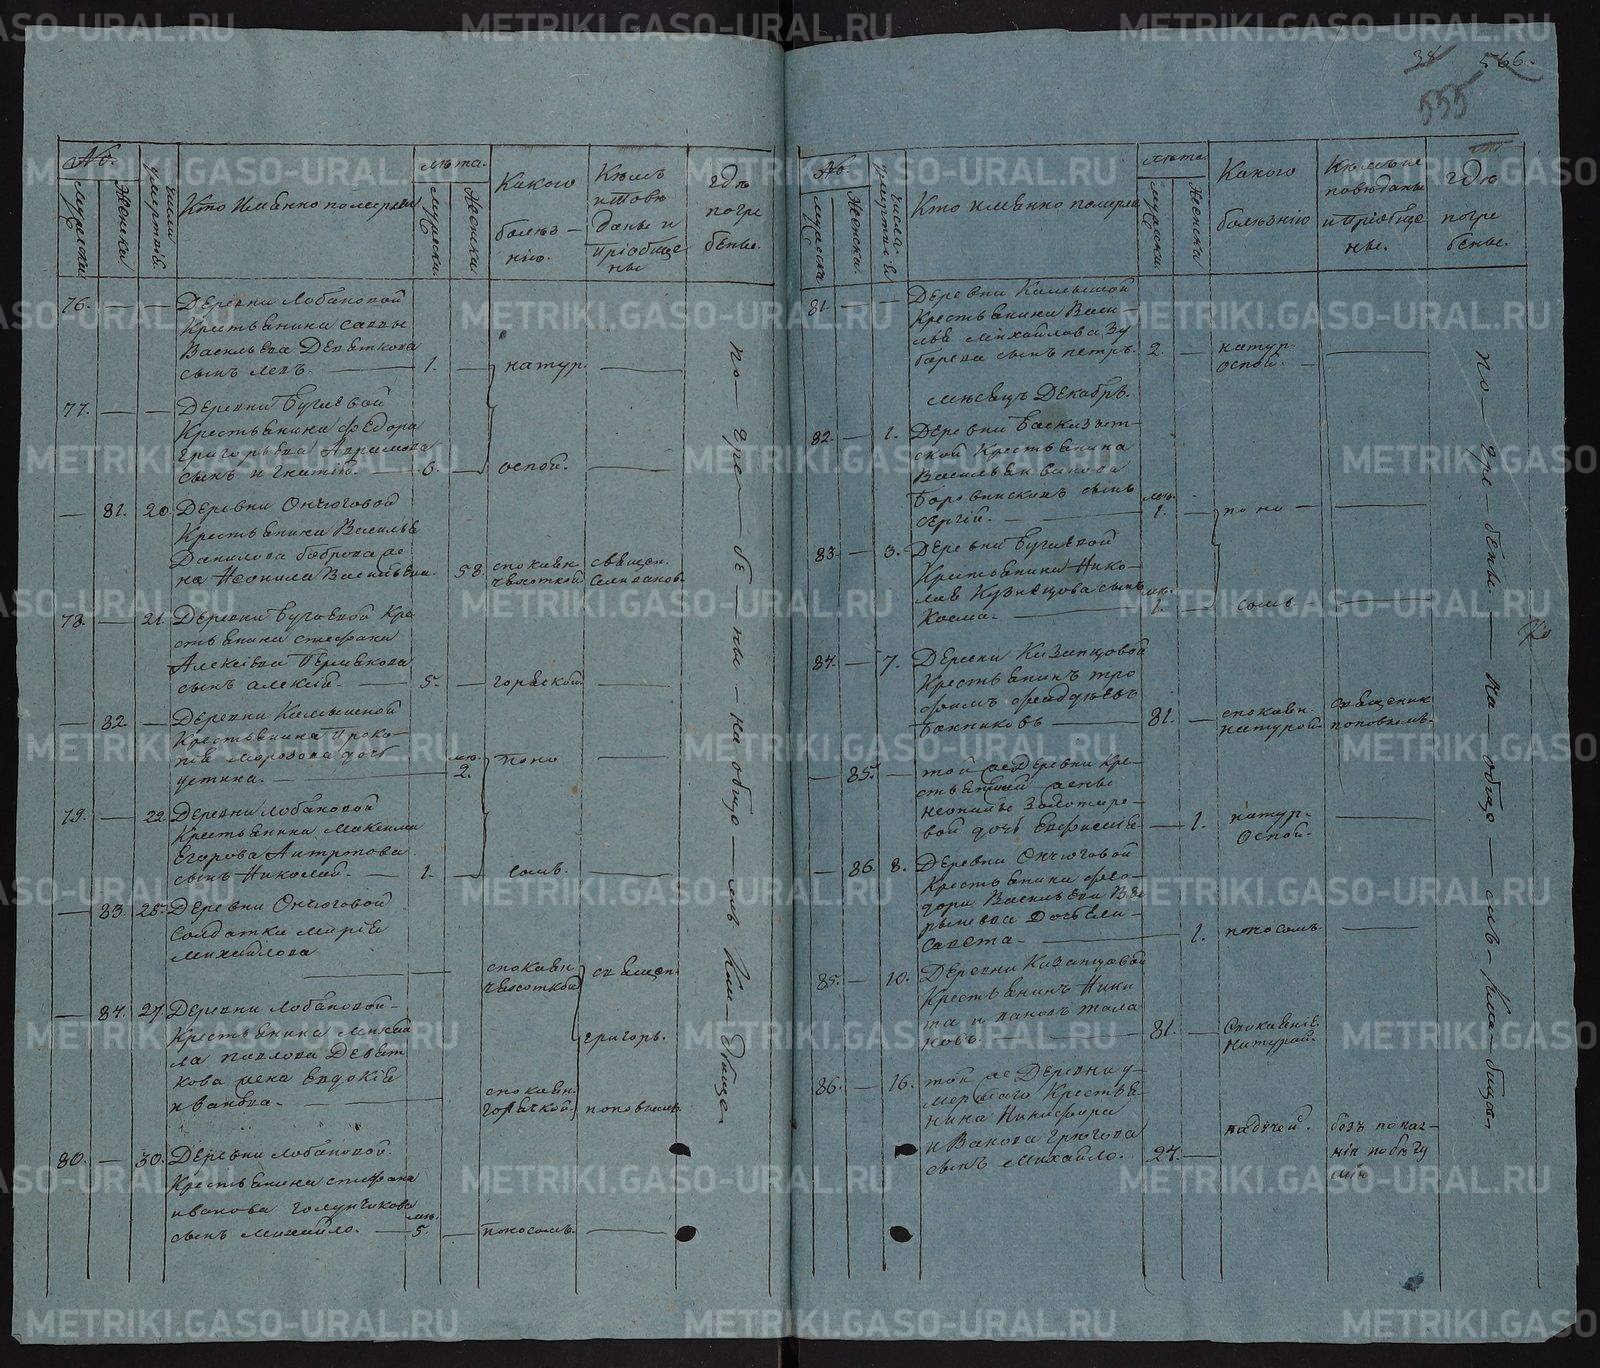 38 566.
555
№
Мужески
Женски
числа умертвiя
Кто имянно померли
лѣта.
Мужески.
Женски
Какого
болѣз-
нiю.
Кѣмъ
исповѣ
даны и
прiобще
ны
гдѣ
погре
бены.
76.
Деревни Лобановой
Крестьянина Саввы
Васильева Деветкова
сынъ Левъ.
1.
натур.
77.
Деревни Бугаевой
Крестьянина Федора
Григорьева Абрамова
сынъ Игнатiй.
6.
оспой.
81. 20. Деревни Ончюговой
Крестьянина Василья
Данилова Боброва же
на Неонила Васильева.
58.
спокаян.
чехоткой
священ.
Селивановъ
78. 21. Деревни Бугаевой кре
стьянина Стефана
Алексiева Пермякова
сынъ Алексiй.
5.
горячкой.
82
Деревни Камышной
Крестьянина Проко-
пiя Морозова дочь
Устина.
2.
поно
79. 22. Деревни Лобановой
Крестьянина Максима
Егорова Антропова
сынъ Николай.
1.
сомъ.
83. 25. Деревни Ончюговой
Солдатка Марiя
Михайлова
спокаян.
чехоткой
священ.
84. 27. Деревни Лобановой
Крестьянина Михай
ла Павлова Девят
кова жена Евдокiя
Иванова.
спокаян.
горячкой.
григорь.
поповымъ.
80. 30. Деревни Лобановой.
Крестьянина Стефана
Иванова Голунчикова
сынъ Михайло.
5.
поносомъ.
по-гре-бе-ны-на обще-мъ Кла-дбище.
№
Мужеска
Женски.
числа умертвiя
Кто имянно померли
лѣта.
мужски.
Женски
Какого
болѣзнiю
Кѣмъ ис
повѣданы
и прiобще
ны.
гдѣ
погре
бены.
81.
Деревни Камышной
Крестьянина Васи-
лья Михайлова Зу
барева сынъ Петръ.
2.
натур.
оспой.
мѣсяцъ Декабрь.
82. 1. Деревни Баскизят-
ской Крестьянина
Василья Иванова
Боровинскихъ сынъ
Сергiй.
1.
поно
83. 3. Деревни Бугаевой
Крестьянина Нико-
лая Кузнецова сынъ
Косма.
1.
сомъ
84. 7. Деревни Казанцовой
Крестьянинъ Тро
фимъ Фаддѣевъ
Банниковъ
81.
спокаян.
натурой.
Священик
поповымъ.
85.
той же Деревни кре-
стьянской жены
Неонилы Золотаре-
вой дочь Евфимiя.
1.
натур.
Оспой.
86. 8. Деревни Ончюговой
Крестьянина Фео-
дора Васильева
дочь Ели-
савета.
1.
поносомъ.
85. 10. Деревни Казанцовой
Крестьянинъ Ники
та Ивановъ
81.
Спокаянiе
Натурой.
86. 16. той же Деревни у-
мершаго Крестья-
нина Никифора
Иванова
сынъ Михайло.
24.
падучей.
безъ покая-
нiя
по-гре-бены.-на-обще-мъ-Кла-дбище.